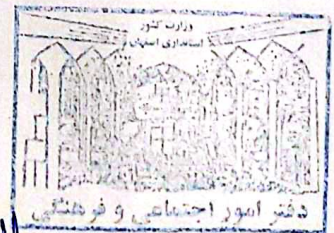 وزارت کشور
استانداری اصفهان
دفتر امور اجتماعی و فرهنگی